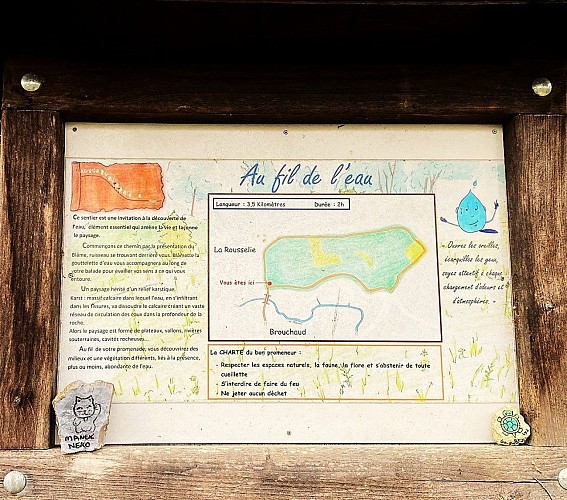 Au fil de l'eau
Ce sentier est une invitation à la découverte de
l'eau, élément essentiel qui amène la vie et façonne
le paysage.
Commençons ce chemin par la présentation du
Blâme, ruisseau se trouvant derrière vous. Blâmette la
gouttelette d'eau vous accompagnera au long de
votre balade pour éveiller vos sens à ce qui vous
entoure.
Un paysage hérité d'un relief karstique.
Karst : massif calcaire dans lequel l'eau, en s'infiltrant
dans les fissures, va dissoudre le calcaire créant un vaste
réseau de circulation des eaux dans la profondeur de la
roche.
Alors le paysage est forme de plateaux, vallons, rivières
souterraines, cavités rocheuses...
Au fil de votre promenade, vous découvrirez des
milieux et une végétation différents, liés à la présence,
plus ou moins, abondante de l'eau.
Longueur : 3,5 Kilomètres Durée : 2h
La Rousselie
Vous êtes ici
Brouchaud
La CHARTE du bon promeneur :
- Respecter les espaces naturels, la faune, la flore et s'abstenir de toute
cueillette
- S'interdire de faire du feu
- Ne jeter aucun déchet
« Ouvrez les oreilles,
écarquillez les yeux,
soyez attentif à chaque
changement d'odeurs et
d'atmosphères. »
MANEKI
NEKO